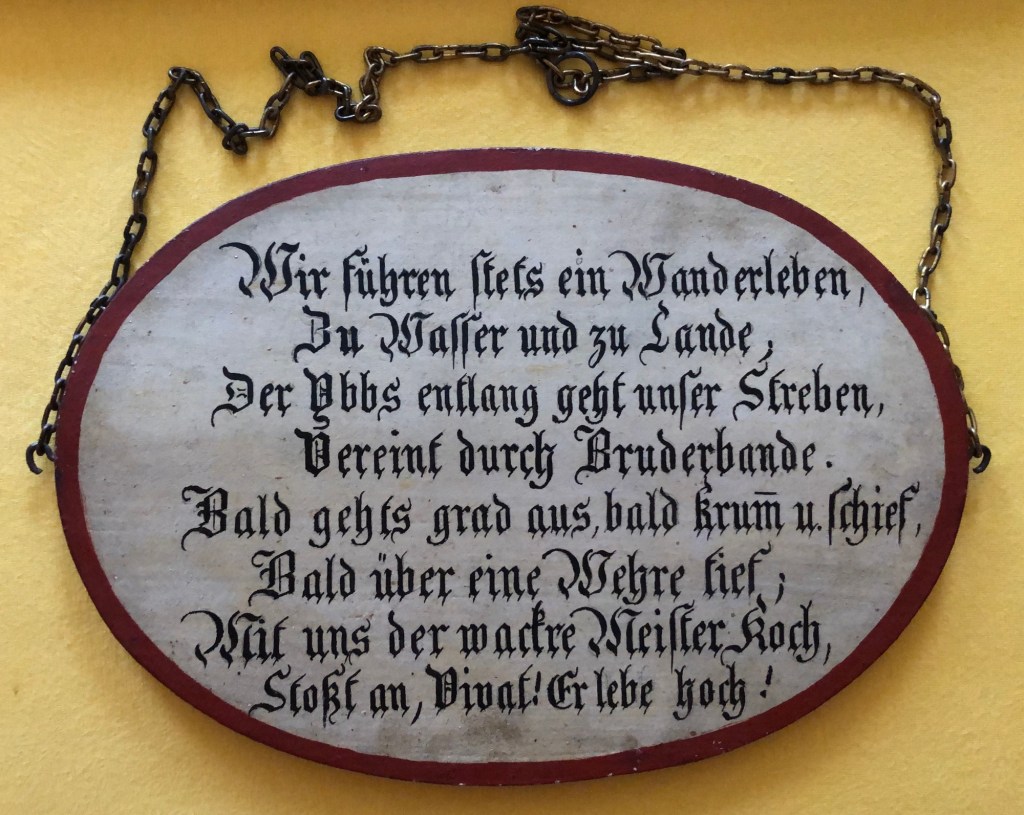 Wir führen stets ein Wanderleben,
Zu Wasser und zu Lande,
Der Ybbs entlang geht unser Streben,
Vereint durch Bruderbande.
Bald gehts grad aus, bald krum̅ u. schief,
Bald über eine Wehre tief;
Mit uns der wackre Meister Koch,
Stoßt an, Vivat! Er lebe hoch!